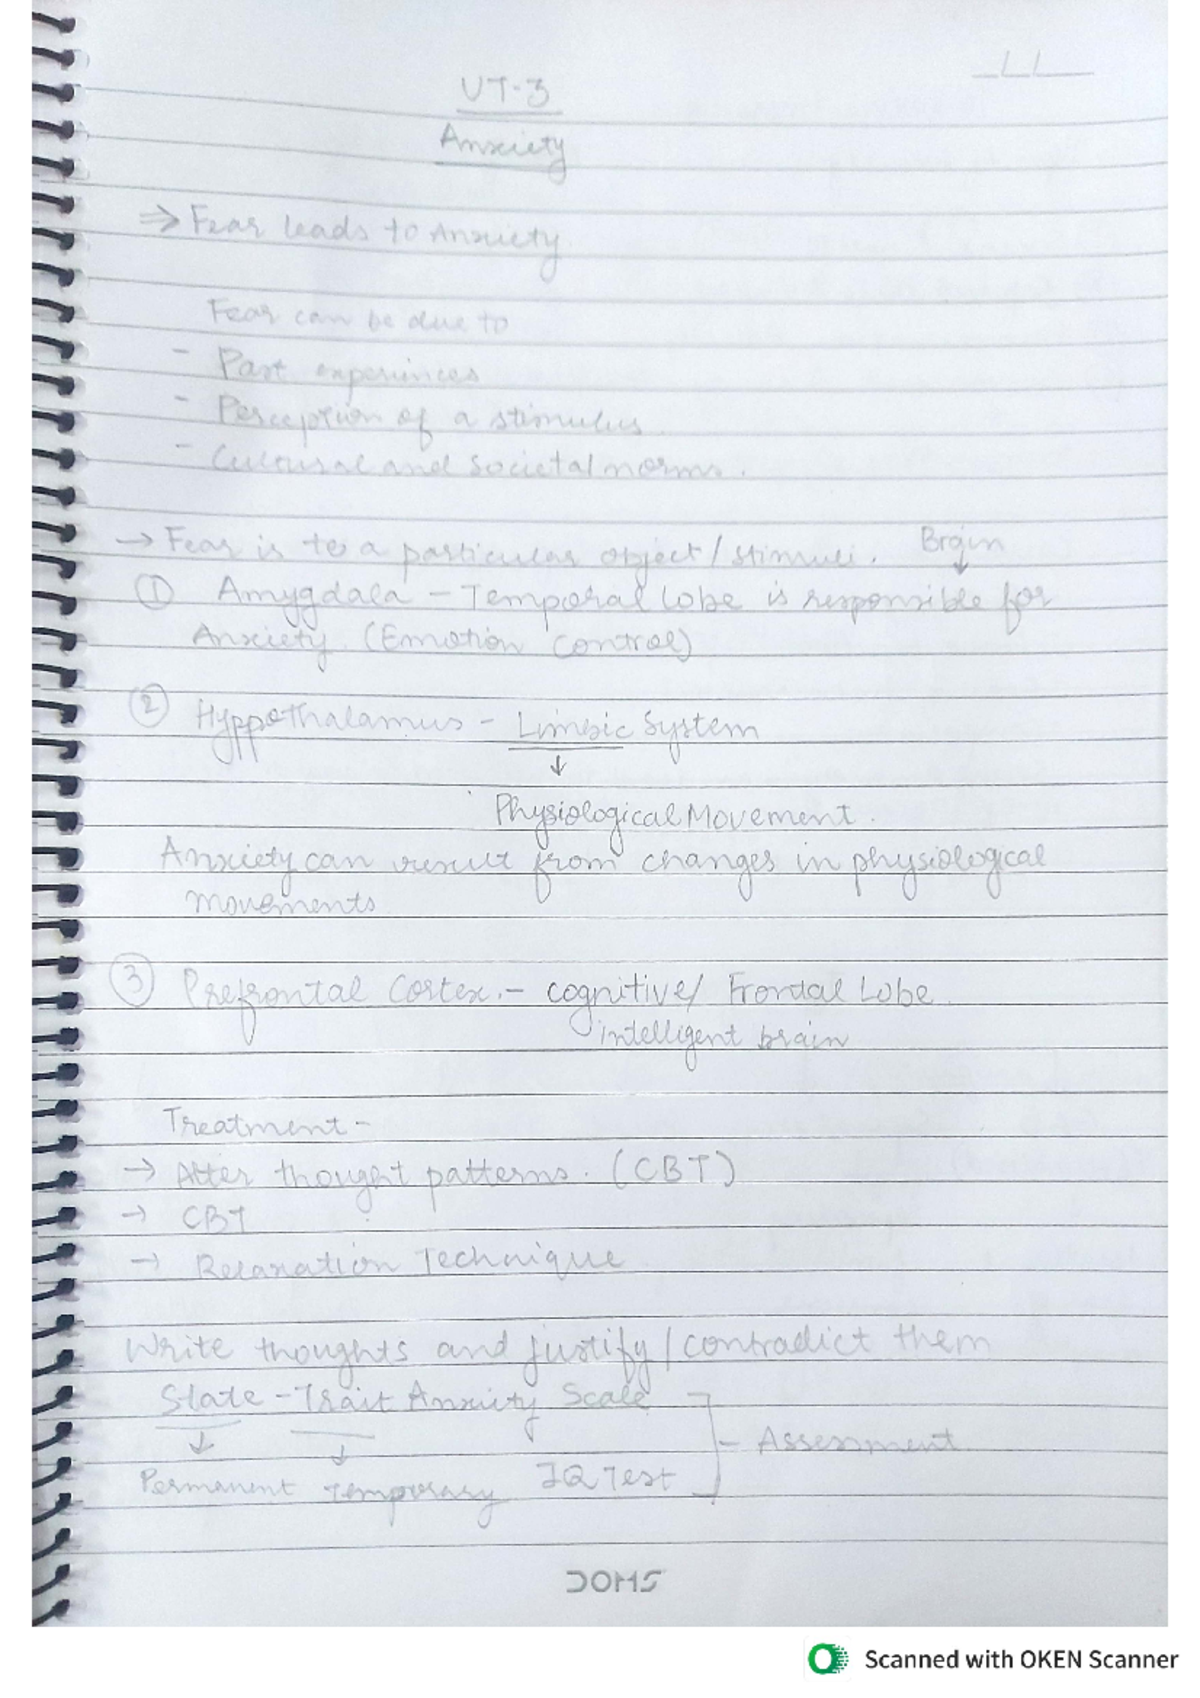 UT-3
Anxiety
⇒ Fear leads to Anxiety
Fear can be due to
- Past experiences
- Perception of a stimulus
- Cultural and societal norms.
→ Fear is to a particular object/stimuli. Brain
↓
① Amygdala - Temporal lobe is responsible for
Anxiety. (Emotion Control)
② Hyppothalamus - Limbic System
↓
Physiological Movement.
Anxiety can result from changes in physiological
movements
③ Prefrontal Cortex. - cognitive/ Frontal Lobe
intelligent brain
Treatment -
→ Alter thought patterns. (CBT)
→ CBT
→ Relaxation Technique
Write thoughts and justify/contradict them
State - Trait Anxiety Scale
- Assessment
↓ ↓
Permanent Temporary IQ Test
DOMS
Scanned with OKEN Scanner